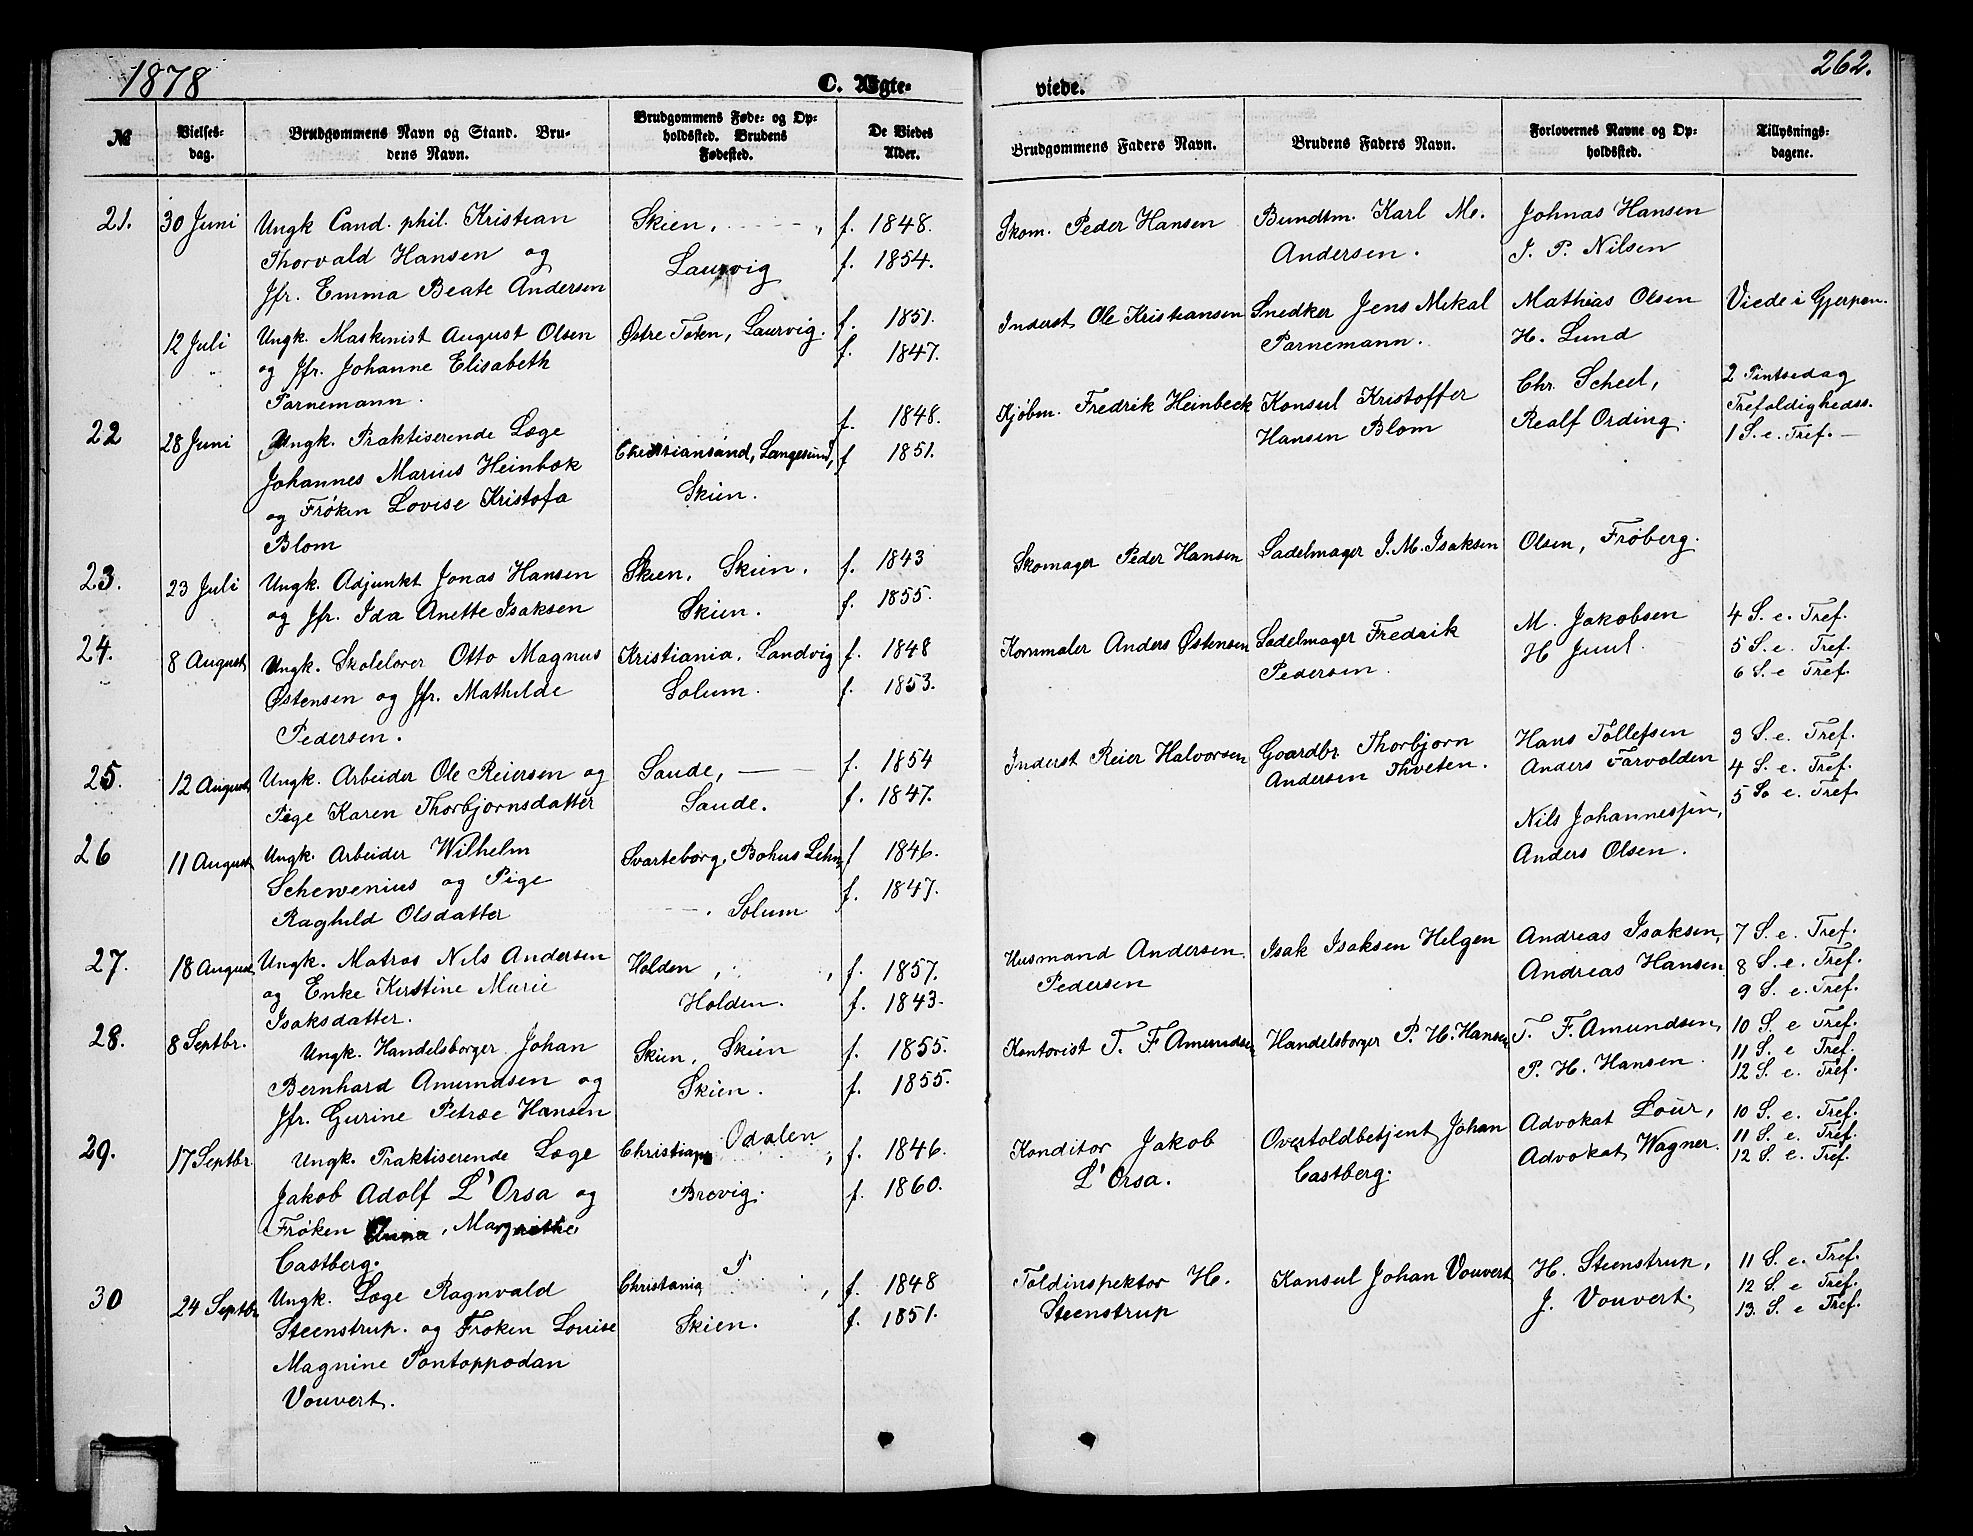 1878
262.
C. Ægte-
viede.
№
Vielses-
dag.
Brudgommens Navn og Stand. Bru-
dens Navn.
Brudgommens Føde- og Op-
holdssted. Brudens
Fødested.
De Viedes
Alder.
Brudgommens Faders Navn.
Brudens Faders Navn.
Forlovernes Navne og Op-
holdssted.
Tillysnings-
dagene.
21.
30 Juni
Ungk Cand. phil. Kristian
Thorvald Hansen og
Jfr. Emma Beate Andersen
Skien,
Laurvig
f. 1848.
f. 1854.
Skom. Peder Hansen
Bundtm. Karl M.
Andersen.
Johnas Hansen
J. P. Nilsen
12 Juli
Ungk. Maskinist August Olsen
og Jfr. Johanne Elisabeth
Parnemann.
Østre Toten, Laurvig.
f. 1851.
f. 1847.
Inderst Ole Kristiansen
Snedker Jens Mikal
Parnemann.
Mathias Olsen
H. Lund
Viede i Gjerpen.
22
28 Juni
Ungk. Praktiserende Læge
Johannes Marius Heinbok
og Frøken Lovise Kristofa
Blom
Christiansand, Langesund,
Skien.
f. 1848.
f 1851.
Kjøbm. Fredrik Heinbeck
Konsul Kristoffer
Hansen Blom
Chr. Scheel,
Realf Ording.
2 Pintsedag
Trefoldighedss.
1 S. e. Tref. —
23.
23 Juli
Ungk. Adjunkt Jonas Hansen
og Jfr. Ida Anette Isaksen
Skien, Skien.
Skien.
f. 1843
f. 1855.
Skomager Peder Hansen
Sadelmager J. M. Isaksen
Olsen, Frøberg.
24.
8 August
Ungk. Skolelærer Otto Magnus
Østensen og Jfr. Mathilde
Pedersen.
Kristiania, Landvig
Solum.
f. 1848
f. 1853.
Kornmaler Anders Østensen
Sadelmager Fredrik
Pedersen.
M. Jakobsen
H Juul.
4 S. e. Tref.
5 S. e. Tref.
6 S. e Tref.
25.
12 August
Ungk. Arbeider Ole Reiersen og
Pige Karen Thorbjornsdatter
Saude, —
Saude.
f. 1854
f. 1847.
Inderst Reier Halvorsen
Gaardbr. Thorbjorn
Andersen Thveten.
Hans Tollefsen
Anders Farvolden
3 S. e. Tref.
4 S. e. Tref.
5 S. e. Tref
26
11 August
Ungk. Arbeider Wilhelm
Schewenius og Pige
Raghild Olsdatter
Svarteborg, Bohus Lehn
Solum
f 1846.
f. 1847.
Nils Johannessen,
Anders Olsen.
27.
18 August
Ungk. Matros Nils Andersen
og Enke Kirstine Marie
Isaksdatter.
Holden,
Holden.
f. 1857.
f. 1843.
Husmand Andersen
Pedersen
Isak Isaksen Helgen
Andreas Isaksen,
Andreas Hansen
7 S. e. Tref.
8 S. e. Tref.
9 S. e. Tref.
28.
8 Septbr.
Ungk. Handelsborger Johan
Bernhard Amundsen og
Jfr. Gurine Petræ Hansen
Skien, Skien
Skien.
f. 1855.
f. 1855.
Kontorist T. F Amundsen
Handelsborger P. H. Hansen
T. F. Amundsen,
P. H. Hansen.
10 S. e Tref.
11 S. e Tref.
12 S. e. Tref.
29.
17 Septbr
Ungk. Praktiserende Læge
Jakob Adolf L'Orsa og
Frøken Margrethe
Castberg.
Odalen
Brevig.
f. 1846.
f. 1860.
Konditor Jakob
L'Orsa.
Overtoldbetjent Johan
Castberg.
Advokat Lour,
Advokat Wagner.
10 S. e. Tref.
11 S. e. Tref.
12 S. e. Tref.
30
24 Septbr
Ungk. Læge Ragnvald
Steenstrup. og Frøken Louise
Magnine Pontoppodan
Vouvert.
Christania
Skien.
f. 1848
f. 1851.
Toldinspektor H.
Steenstrup
Konsul Johan Vouvert
H. Steenstrup,
J. Vouvert.
11 S. e. Tref.
12 S. e Tref.
13. S. e Tref.